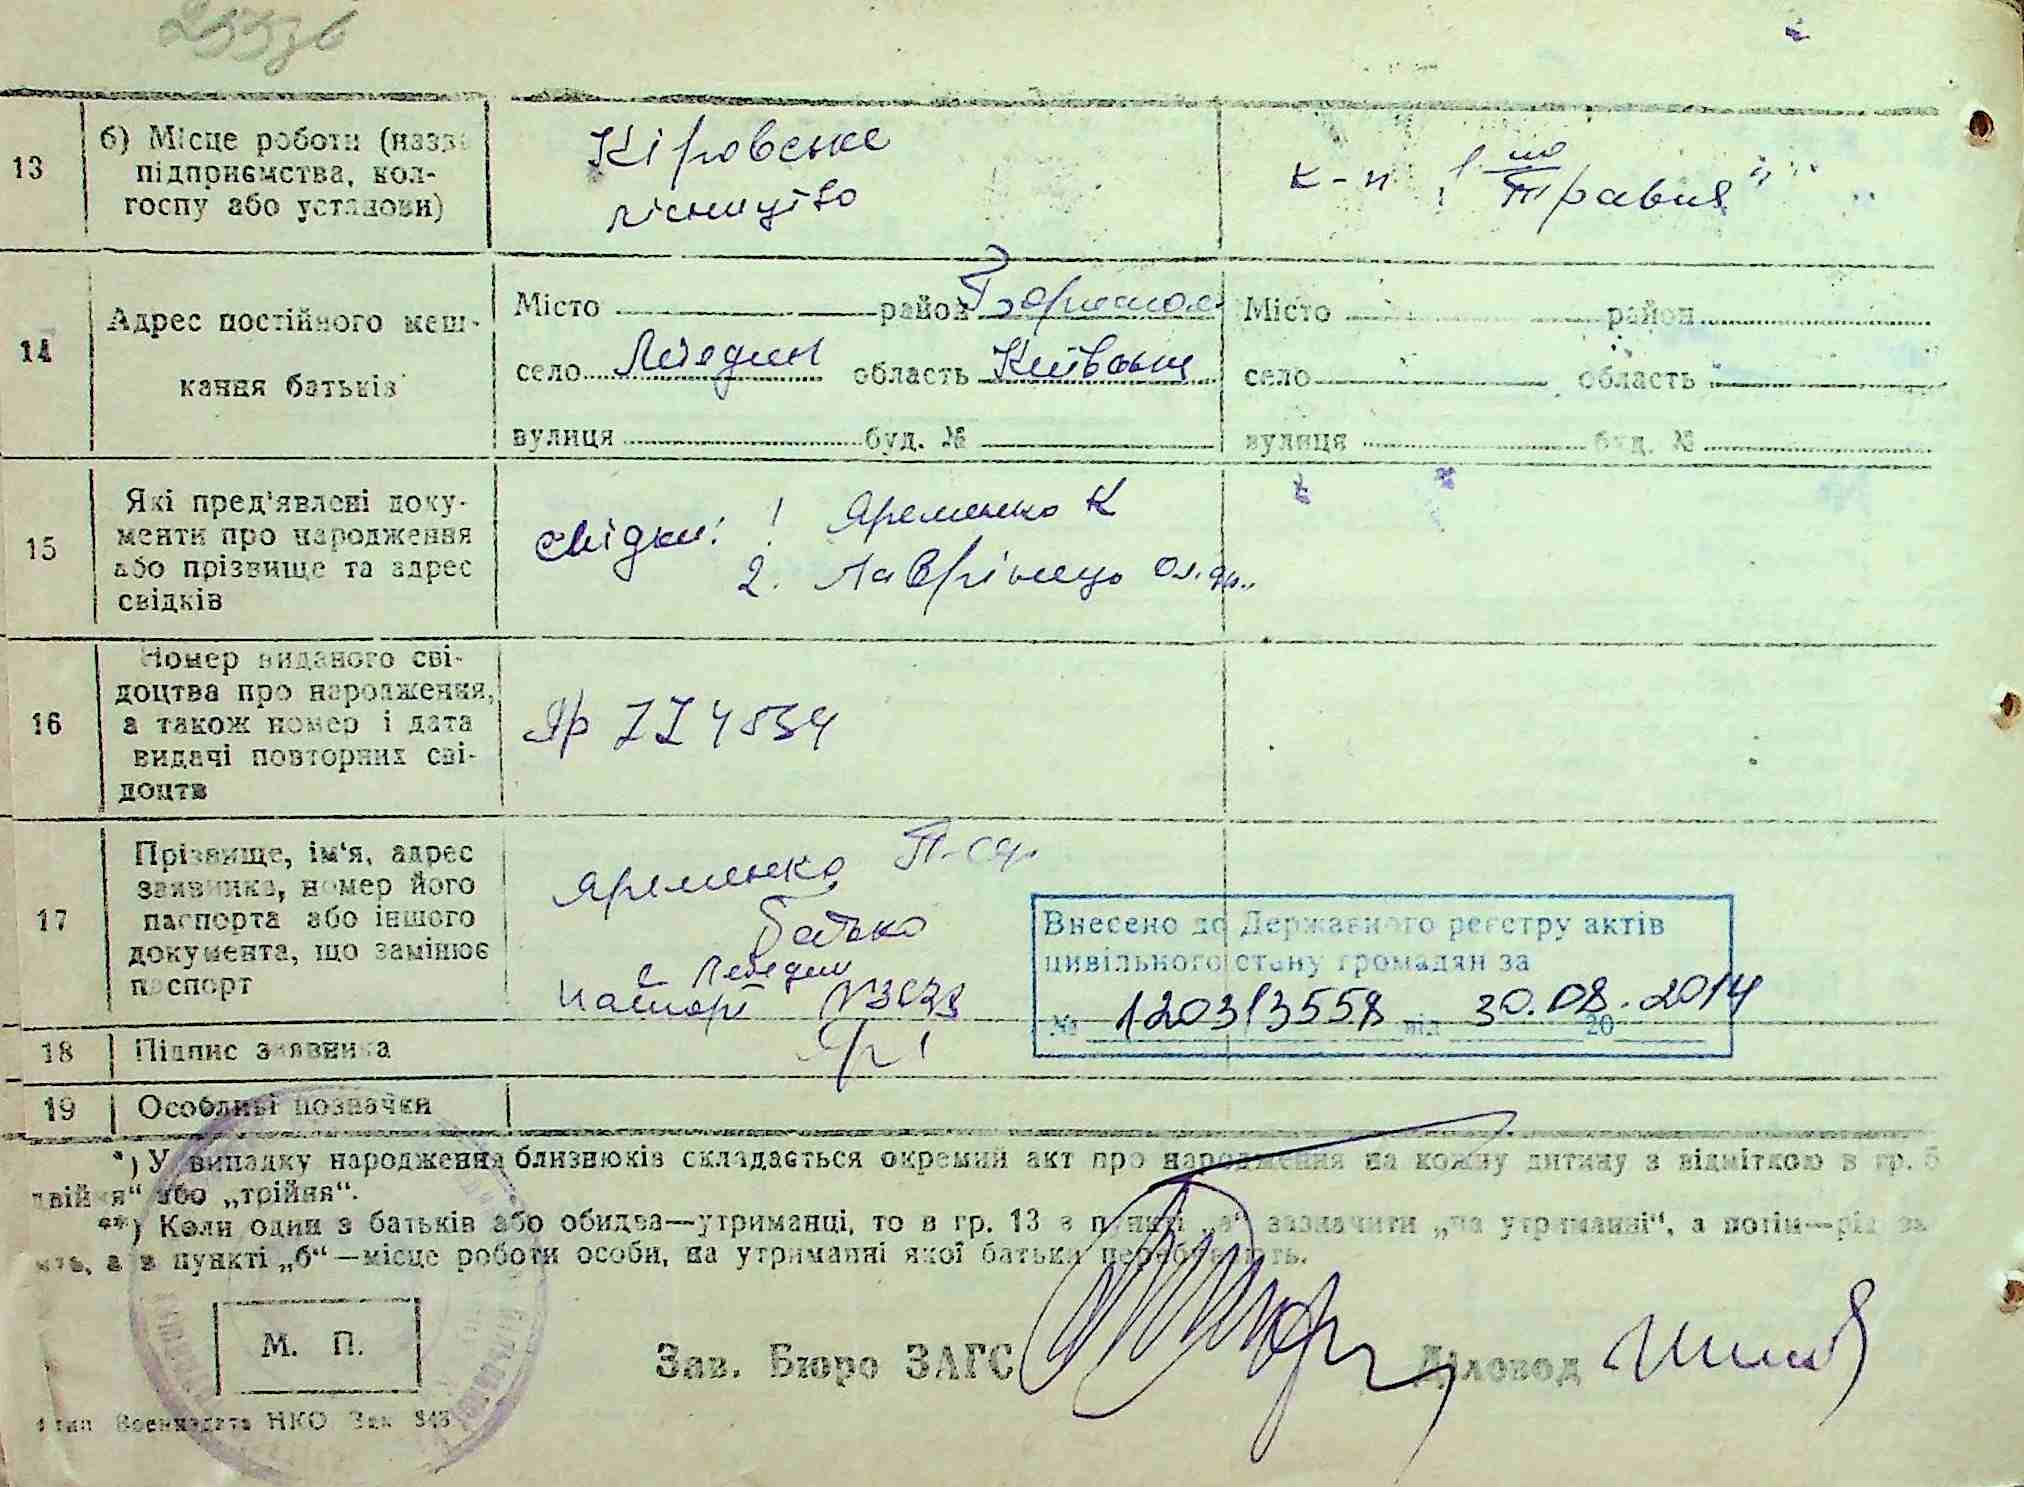 13
б) Місце роботи (назва
підприємства, кол-
госпу або установи)
Кіровське
лісництво
к-п „1 го
Травня"
14
Адрес постійного меш-
кання батьків
Місто район Борисполь
село Лебедин область Київська
вулиця буд. №
Місто район
село область
вулиця буд. №
15
Які пред'явлені доку-
менти про народження
або прізвище та адрес
свідків
свідки: 1 Яременко К
2. Лаврінець
16
Номер виданого сві-
доцтва про народження,
а також номер і дата
видачі повторних сві-
доцтв
17
Прізвище, ім'я, адрес
заявника, номер його
паспорта або іншого
документа, що замінює
паспорт
Яременко
батько
с. Лебедин
паспорт
Внесено до Державного реєстру актів
цивільного стану громадян за
№ 120313558 від 30.08.2014
20
18
Підпис заявника
19
Особливі позначки
*) У випадку народження близнюків складається окремий акт про народження на кожну дитину з відміткою в гр. 6
двійня" або „трійня".
**) Коли один з батьків або обидва—утриманці, то в гр. 13 в пункті „а" зазначити „на утриманні", а потім—рід за
, а в пункті „б"—місце роботи особи, на утриманні якої батьки перебувають.
М. П.
Зав. Бюро ЗАГС
Діловод
тип Воениздата НКО Зак 843